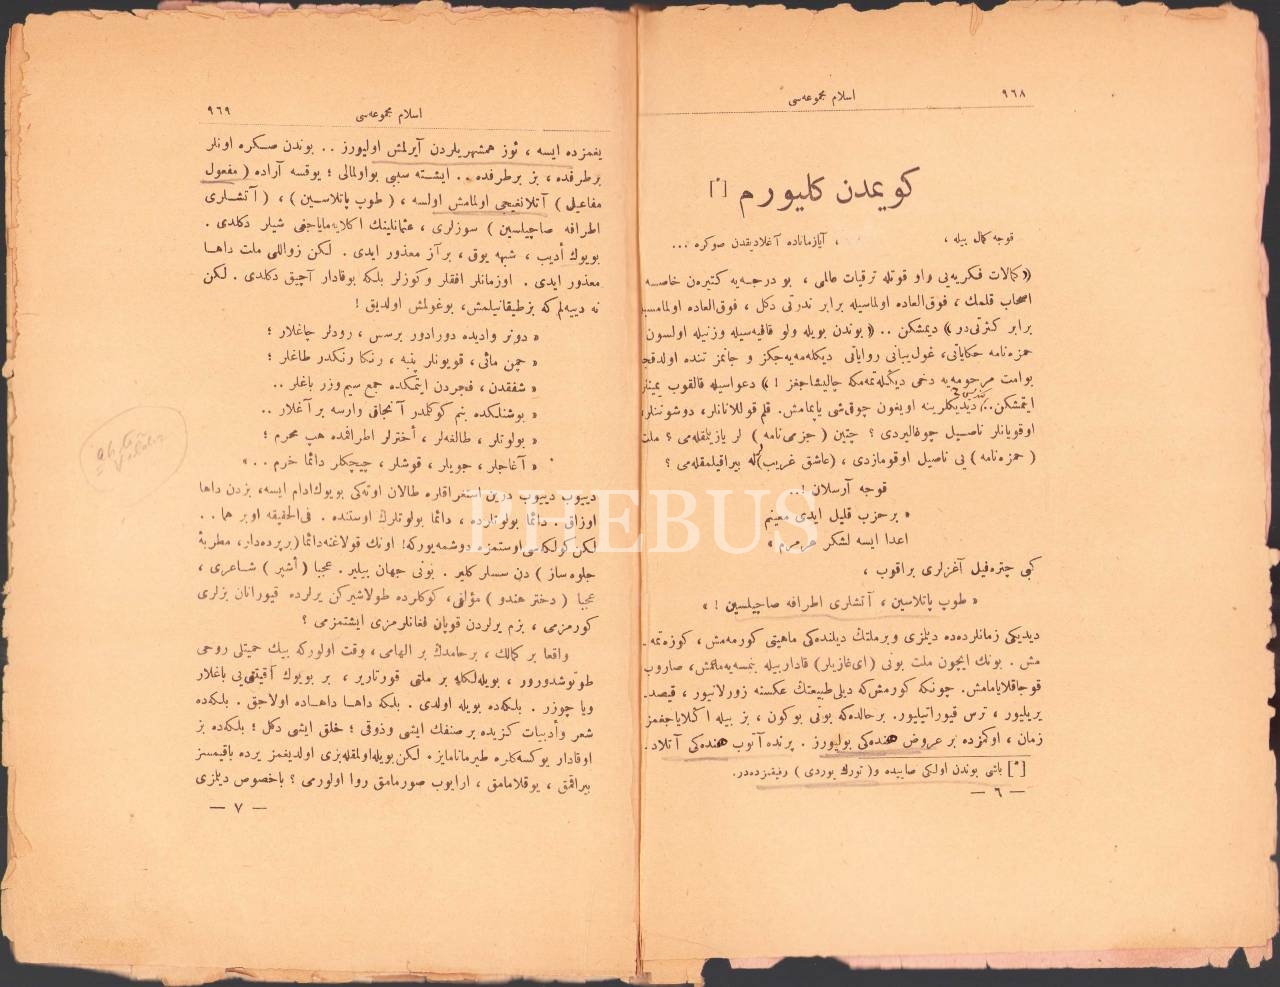 ٩٦٨
اسلام مجموعه‌سی
كویمدن كلیورم [*]
قوجه كمال بیله ، ، آیازماناده آغلادیقدن صوكره ...
« كمالات فكریه‌یی واو قوتله ترقیات عالمی ، بو درجه‌یه كتیرەن خاصسه
اصحاب قلمك ، فوق‌العاده اولماسیله برابر ندرتی دكل ، فوق‌العاده اولمامسیـ
برابر كثرتی‌در » دیمشكن .. « بوندن بویله ولو قافیه‌سیله وزنیله اولسون
حمزه‌نامه حكایاتی ، غول‌یبانی روایاتی دیكله‌مه‌یه‌جكز و جانمز تنده اولدقجـ
بوامت مرحومه‌یه دخی دیكله‌تمه‌مكه چالیشاجغز ! » دعواسیله قالقوب یمیتلر
ایتمشكن.. دیدیكلرینه اویغون چوق‌شی یاپمامش. قلم قوللانانلر، دوشوننلر،
اوقویانلر ناصـیل چوغالیردی ؟ چتین ( جزمی‌نامه ) لر یازیلمقله‌می ؟ ملت
( حمزه‌نامه ) یی ناصیل اوقومازدی ، (عاشق غریب) له بیراقیلمقله‌می ؟
قوجه آرسلان !..
« بر حزب قلیل ایدی معینم
اعدا ایسه لشكر هرمرم »
كبی چتره‌فیل آغزلری براقوب ،
« طوپ پاتلاسین ، آتشلری اطرافه صاچیلسین ! »
دیدیكی زمانلرده‌ده دیلمزی وبرملتك دیلنده‌كی ماهیتی كورمه‌مش ، كوزه‌تمه‌ـ
مش . بونك ایچون ملت بونی (ای‌غازیلر) قاداربیله بنمسه‌یه‌مامش، صاروب
قوجاقلایامامش. چونكه كورمش‌كه دیلی طبیعتك عكسنه زورلانیور ، قیصد.
یریلیور ، ترس قیوراتیلیور. برحالده‌كه بونی بوكون ، بز بیله اكلایاجغمز
زمان ، اوكمزده بر عروض هنده‌كی بولیورز . پرنده آتوب هنده‌كی آتلاد.
[*] باشی بوندن اولكی صاییده و( تورك یوردی ) رفیقمزده‌در.
— ٦ —
اسلام مجموعه‌سی
٩٦٩
یغمزده ایسه ، ئوز همشهریلردن آیرلمش اولیورز .. بوندن صـكره اونلر
برطرفده ، بز برطرفده .. ایشـته سببی بواولمالی ؛ یوقسه آراده ( مفعول
مفاعیل ) آتلانغیجی اولمامش اولسه ، ( طوپ پاتلاسـین ) ، ( آتشـلری
اطرافه صاچیلسین ) سوزلری ، عثمانلینك اكلایه‌مایاجغی شیلر دكلدی .
بویوك أدیب ، شبهه یوق ، برآز معذور ایدی . لكن زواللی ملت داهـا
معذور ایدی . اوزمانلر افقلر وكوزلر بلكه بوقادار آچیق دكلدی . لكن
نه دییه‌لم كه بزطیقانیلمش، بوغولمش اولدیق !
« دونر وادیده دورادور برسس ، رودلر چاغلار ؛
« چمن مائی ، قویونلر پنبه ، رنكا رنكدر طاغلر ؛
« شفقدن ، فجردن ایتمكده جمع سیم وزر باغلر ..
« بوشنلكده بنم كوكلمدر آنجاق وارسه بر آغلار ..
« بولوتلر ، طالغه‌لر ، أخترلر اطرافمده هپ محرم ؛
« آغاجلر ، جویلر ، قوشلر ، چیچكلر دائما خرم . . »
دییوب دییوب درین استغراقلره طالان اوته‌كی بویوك‌ادام ایسه، بزدن داها
اوزاق . دائما بولوتلرده ، دائما بولوتلرك اوستنده . فی‌الحقیقه اوبر هما . .
لكن كولكه‌سی اوستمزه دوشمه‌یوركه! اونك قولاغنه دائما (برپرده‌دار، مطربۀ
جلوه‌ساز ) دن سسلر كلیر . بونی جهان بیلیر . عجبا ( أشبر ) شـاعری ،
عجبا ( دختر هندو ) مؤلفی، كوكلرده طولاشیركن یرلرده قیورانان بزلری
كورمزمی ، بزم یرلردن قوپان فغانلرمزی ایشتمزمی ؟
واقعا بر كمالك ، برحامدك بر الهامی ، وقت اولوركه بیك حمیتلی روحی
طوتوشدورور ، بویله‌لكله بر ملتی قورتاریر ، بر بویوك آقینتی‌یی باغلار
ویا چوزر . بلكه‌ده بویله اولدی . بلكه داهـا داهـاده اولاجق . بلكه‌ده
شعر وأدبیات كزیده بر صنفك ایشی وذوقی ؛ خلق ایشی دكل ؛ بلكه‌ده بز
اوقادار یوكسكلره طیرمانامایز. لكن‌بویله‌اولمقله‌بزی اولدیغمز یرده باقیمسز
بیراقمق ، یوقلامامق ، آرایوب صورمامق روا اولورمی ؟ باخصوص دیلمزی
— ٧ —
PHEBUS